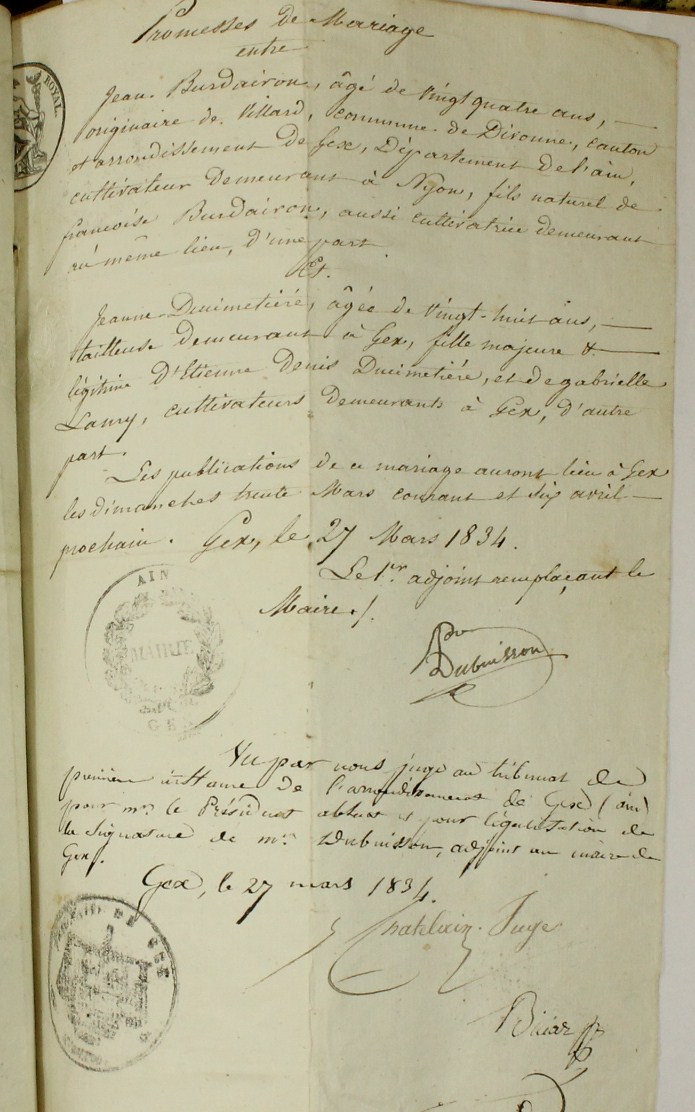 Promesses de Mariage
entre
Jean Burdairon, âgé de Vingt quatre ans, —
originaire de Villard, commune de Divonne, canton
et arrondissement de Gex, Département de l'ain,
cultivateur demeurant à Nyon, fils naturel de
françoise Burdairon, aussi cultivatrice demeurant
au même lieu, d'une part
Et.
Jeanne Ducimetière, âgée de Vingt-huit ans, —
tailleuse demeurant à Gex, fille majeure & —
légitime D'Etienne Denis Ducimetière, et de gabrielle
Lanry, cultivateurs demeurants à Gex, d'autre
part.
Les publications de ce mariage auront lieu à Gex
les dimanches trente Mars courant et six avril —
prochain. Gex, le 27 Mars 1834.
Le 1er adjoint remplaçant le
Maire /.
AIN
MAIRIE
GEX
Dubuisson
Vu par nous juge au tribunal de
première instance de l'arrondissement de Gex (ain)
pour mr. le Président absent et pour légalisation de
la signature de mr. Dubuisson, adjoint au maire de
Gex.
Gex, le 27 mars 1834.
Chatelain Juge
ROYAL
DE GEX